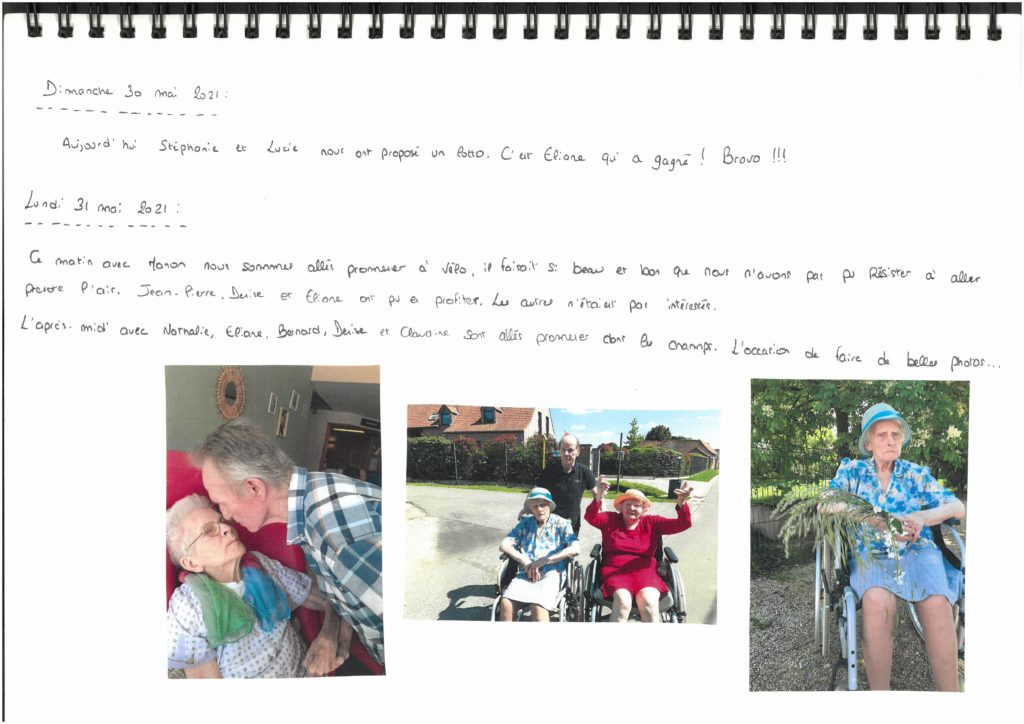 Dimanche 30 mai 2021 :
Aujourd'hui Stéphanie et Lucie nous ont proposé un lotto. C'est Eliane qui a gagné ! Bravo !!!
Lundi 31 mai 2021 :
Ce matin avec Manon nous sommes allés promener à vélo, il faisait si beau et bon que nous n'avons pas pu résister à aller
prendre l'air. Jean-Pierre, Denise et Eliane ont pu en profiter. Les autres n'étaient pas intéressés.
L'après-midi avec Nathalie, Eliane, Bernard, Denise et Claudine sont allés promener dans les champs. L'occasion de faire de belles photos...